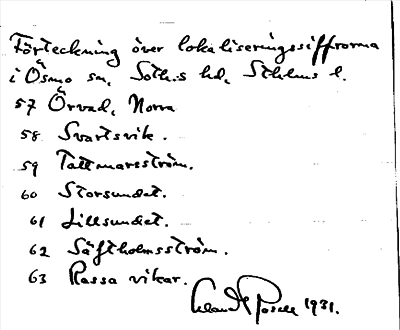 Förteckning över lokaliseringssiffrorna
i Ösmo sn, Soth:s hd, Sthlms l.
57 Örvad, Norra
58 Svartsvik.
59 Tallmaresström.
60 Storsundet.
61 Lillsundet.
62 Säftholmsström.
63 Rassa vikar.
1931.